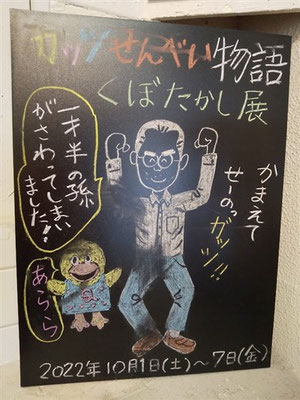 ガッツせんべい物語
くぼたかし展
一才半の孫
がさわってしまい
ました!!
あらら
かまえて
せーのっ
ガッツ!!
2022年10月1日(土)〜7日(金)